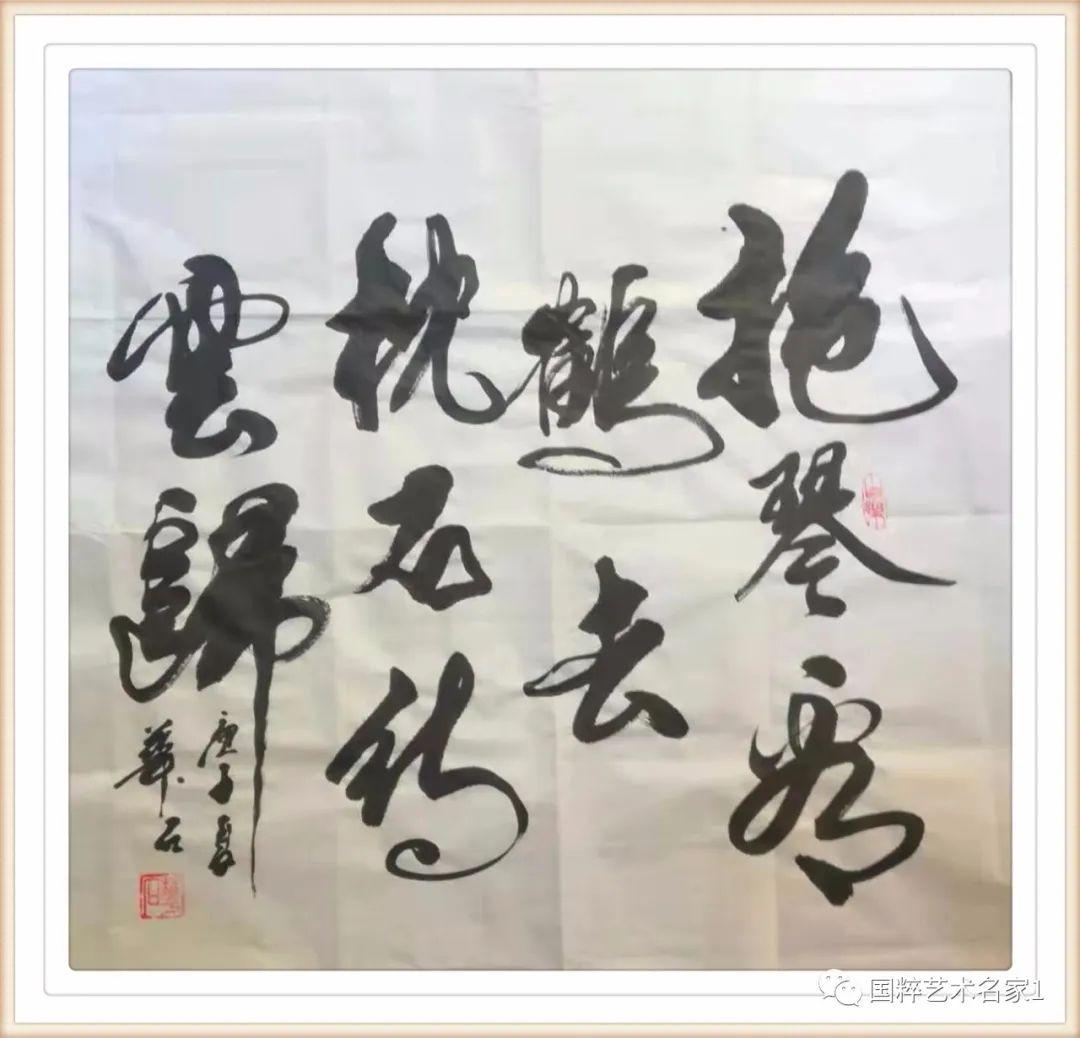 抱琴看
鶴去
枕石待
雲歸
庚子夏
華石
国粹艺术名家1